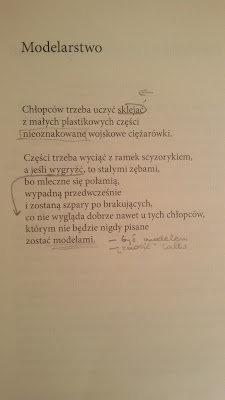 Modelarstwo
Chłopców trzeba uczyć sklejać
z małych plastikowych części
nieoznakowane wojskowe ciężarówki.
Części trzeba wyciąć z ramek scyzorykiem,
a jeśli wygryźć, to stałymi zębami,
bo mleczne się połamią,
wypadną przedwcześnie
i zostaną szpary po brakujących,
co nie wygląda dobrze nawet u tych chłopców,
którym nie będzie nigdy pisane
zostać modelami.
– być modelem